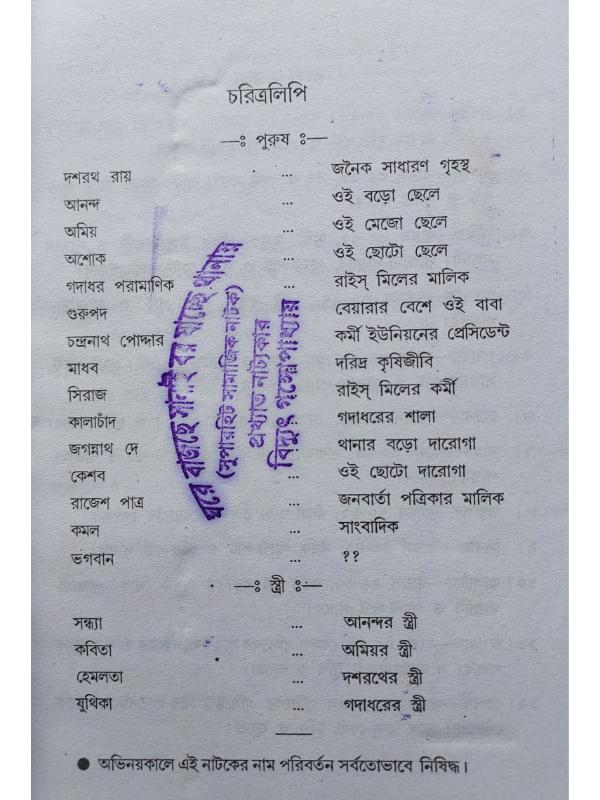 চরিত্রলিপি
—ঃ পুরুষ ঃ—
দশরথ রায় ... জনৈক সাধারণ গৃহস্থ
আনন্দ ... ওই বড়ো ছেলে
অমিয় ... ওই মেজো ছেলে
অশোক ... ওই ছোটো ছেলে
গদাধর পরামাণিক ... রাইস্ মিলের মালিক
গুরুপদ বেয়ারার বেশে ওই বাবা
চন্দ্রনাথ পোদ্দার কর্মী ইউনিয়নের প্রেসিডেন্ট
মাধব দরিদ্র কৃষিজীবি
সিরাজ রাইস্ মিলের কর্মী
কালাচাঁদ গদাধরের শালা
জগন্নাথ দে থানার বড়ো দারোগা
কেশব ... ওই ছোটো দারোগা
রাজেশ পাত্র ... জনবার্তা পত্রিকার মালিক
কমল ... সাংবাদিক
ভগবান ... ??
—ঃ স্ত্রী ঃ—
সন্ধ্যা ... আনন্দর স্ত্রী
কবিতা ... অমিয়র স্ত্রী
হেমলতা ... দশরথের স্ত্রী
যুথিকা ... গদাধরের স্ত্রী
● অভিনয়কালে এই নাটকের নাম পরিবর্তন সর্বতোভাবে নিষিদ্ধ।
ঘরে বাজছে সানাই বর যাচ্ছে থানায়
(সুপারহিট সামাজিক নাটক)
প্রখ্যাত নাট্যকার
বিদ্যুৎ গঙ্গোপাধ্যায়